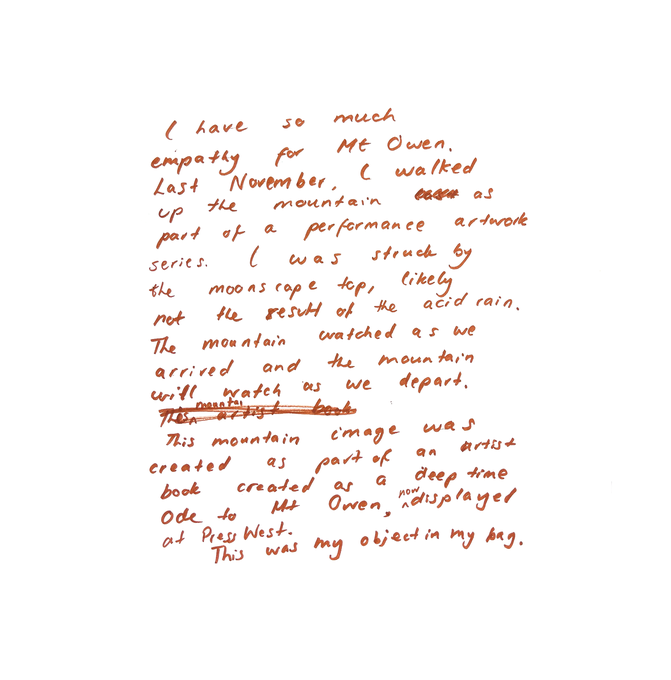 I have so much
empathy for Mt Owen.
Last November, I walked
up the mountain as
part of a performance artwork
series. I was struck by
the moonscape top, likely
not the result of the acid rain.
The mountain watched as we
arrived and the mountain
will watch as we depart.
This mountai artist book
This mountain image was
created as part of an artist
book created as a deep time
Ode to Mt Owen, now displayed
at Press West.
This was my object in my bag.